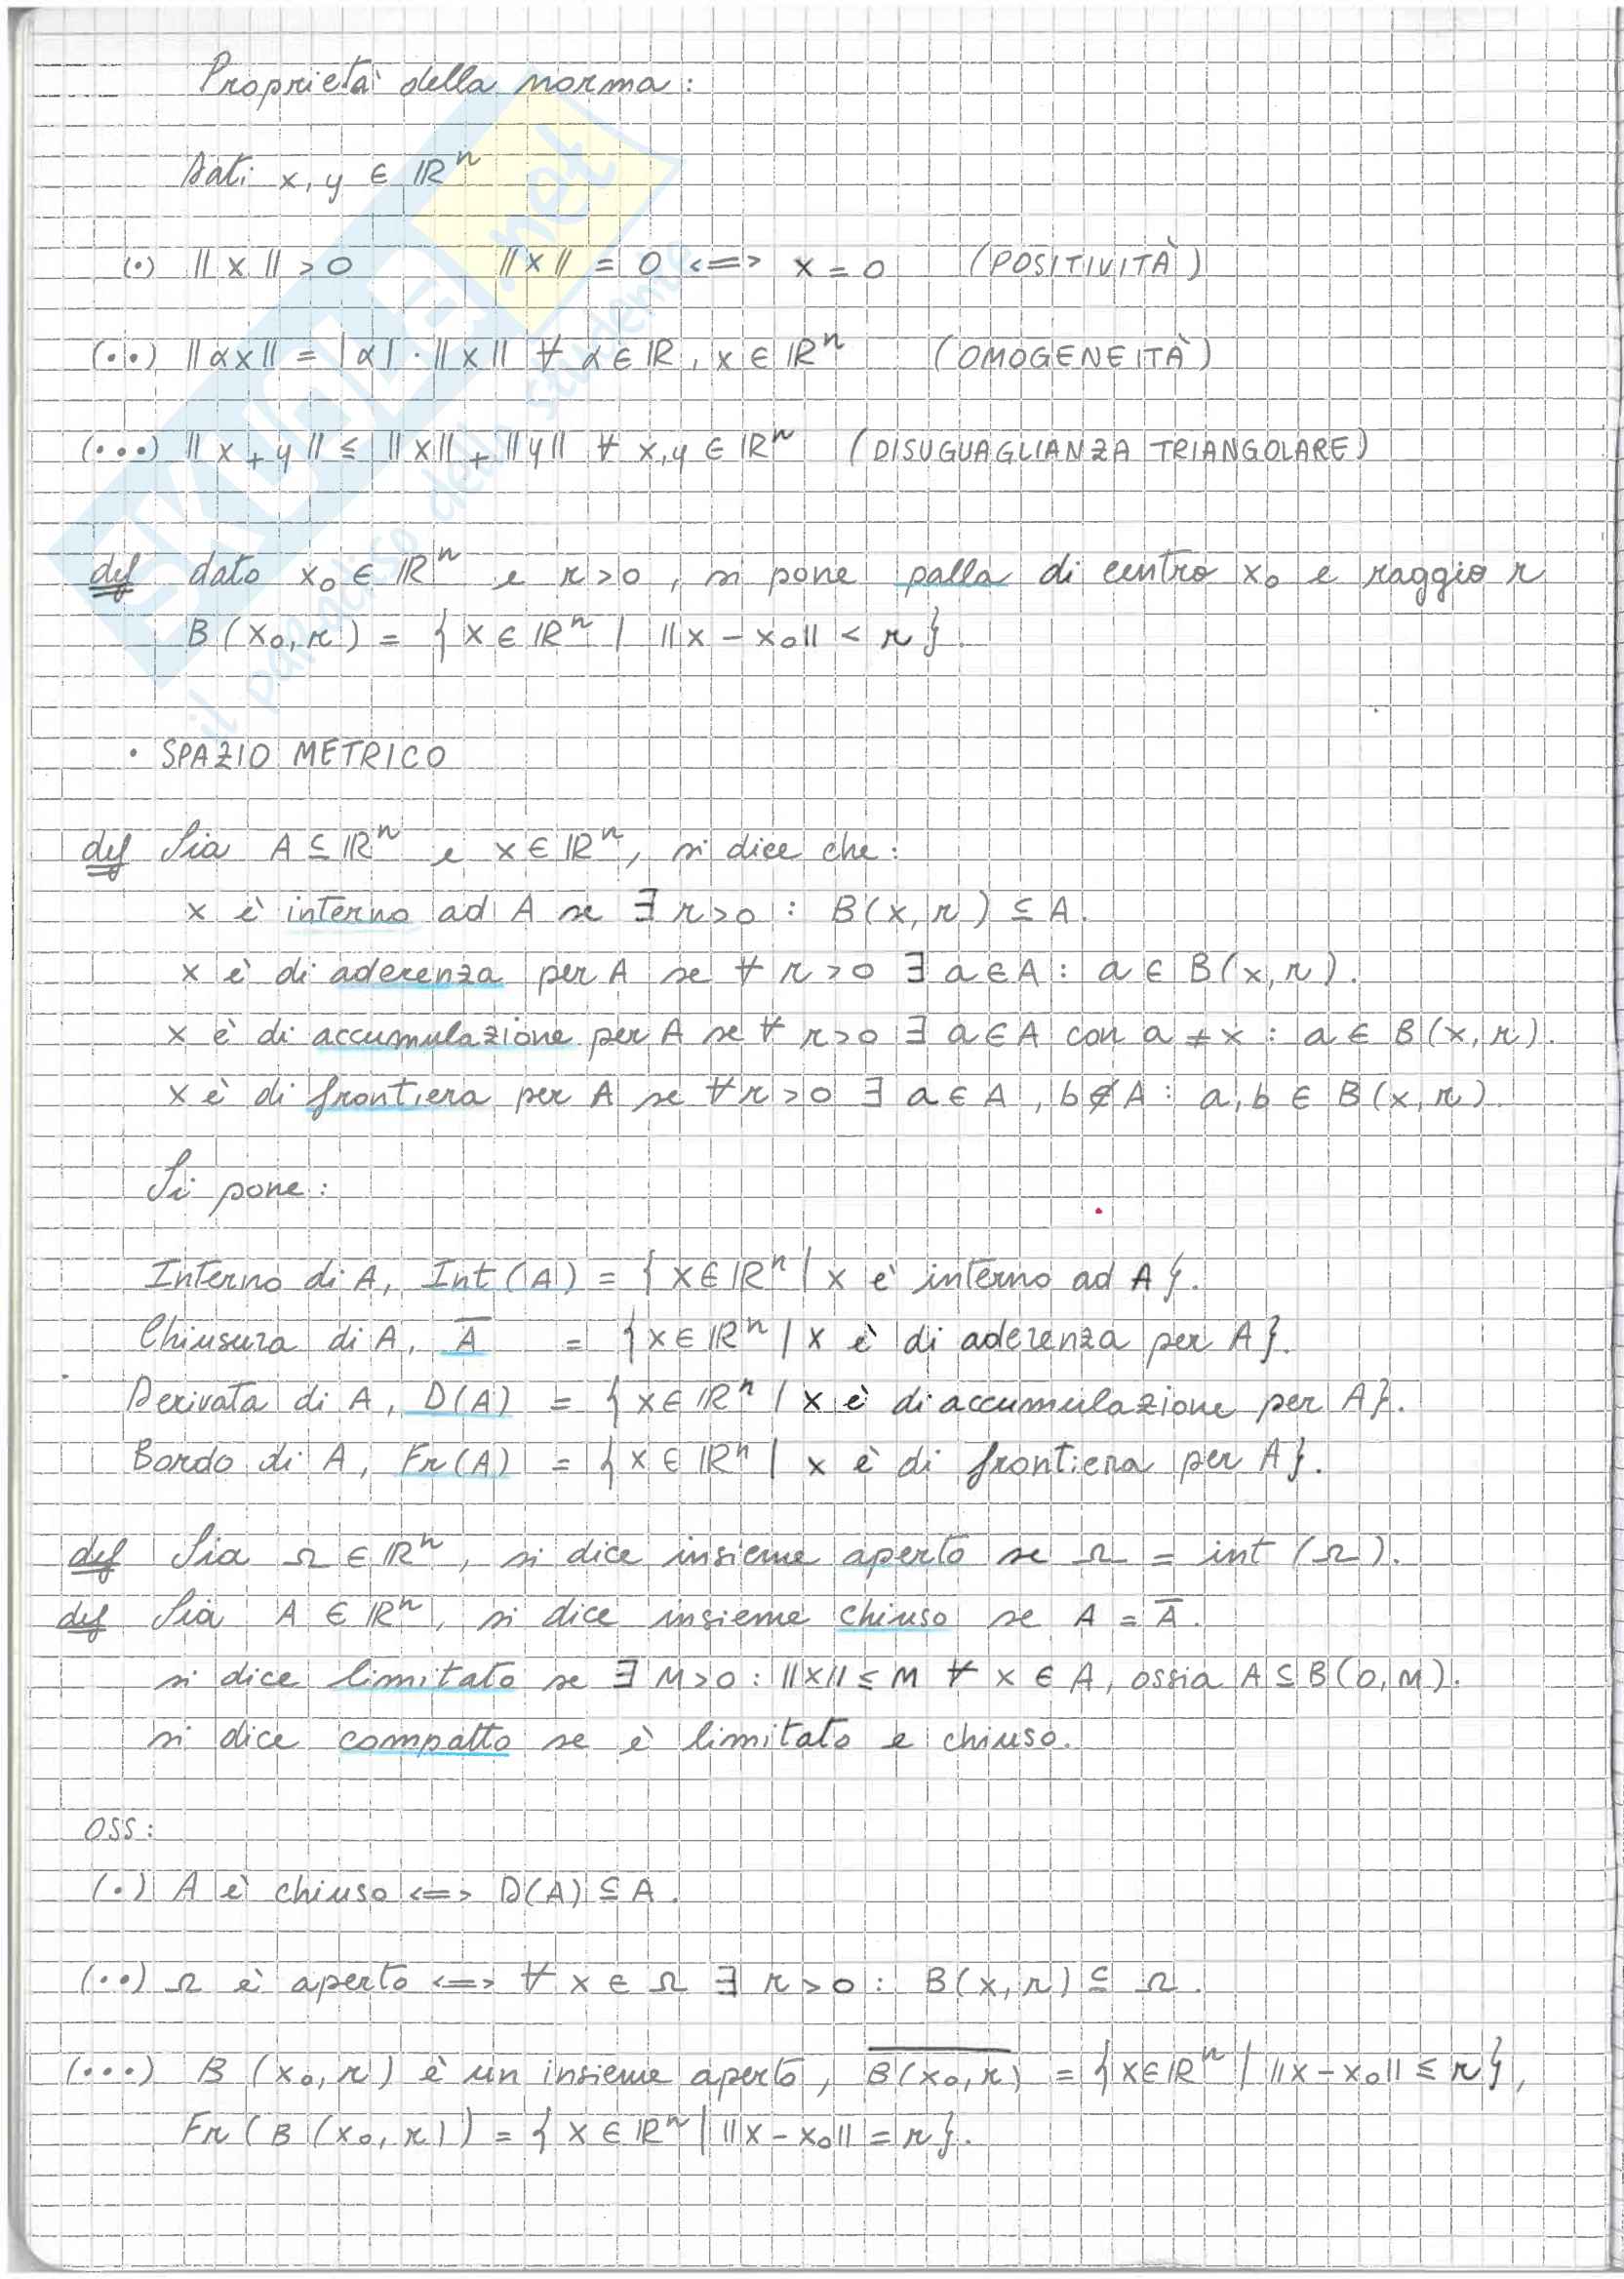 Proprietà della norma:
Dati x, y ∈ ℝⁿ
(•) ||x|| > 0 ||x|| = 0 <=> x = 0 (POSITIVITÀ)
(••) ||αx|| = |α| · ||x|| ∀ α ∈ ℝ, x ∈ ℝⁿ (OMOGENEITÀ)
(•••) ||x + y|| ≤ ||x|| + ||y|| ∀ x,y ∈ ℝⁿ (DISUGUAGLIANZA TRIANGOLARE)
def dato x₀ ∈ ℝⁿ e r > 0, si pone palla di centro x₀ e raggio r
B(x₀, r) = { x ∈ ℝⁿ | ||x - x₀|| < r }.
• SPAZIO METRICO
def Sia A ⊆ ℝⁿ e x ∈ ℝⁿ, si dice che:
x è interno ad A se ∃ r > 0 : B(x, r) ⊆ A.
x è di aderenza per A se ∀ r > 0 ∃ a ∈ A : a ∈ B(x, r).
x è di accumulazione per A se ∀ r > 0 ∃ a ∈ A con a ≠ x : a ∈ B(x, r).
x è di frontiera per A se ∀ r > 0 ∃ a ∈ A, b ∉ A : a, b ∈ B(x, r).
Si pone:
Interno di A, Int(A) = { x ∈ ℝⁿ | x è interno ad A }.
Chiusura di A, A̅ = { x ∈ ℝⁿ | x è di aderenza per A }.
Derivata di A, D(A) = { x ∈ ℝⁿ | x è di accumulazione per A }.
Bordo di A, Fr(A) = { x ∈ ℝⁿ | x è di frontiera per A }.
def Sia Ω ∈ ℝⁿ, si dice insieme aperto se Ω = int(Ω).
def Sia A ∈ ℝⁿ, si dice insieme chiuso se A = A̅.
si dice limitato se ∃ M > 0 : ||x|| ≤ M ∀ x ∈ A, ossia A ⊆ B(0, M).
si dice compatto se è limitato e chiuso.
OSS:
(•) A è chiuso <=> D(A) ⊆ A.
(••) Ω è aperto <=> ∀ x ∈ Ω ∃ r > 0 : B(x, r) ⊆ Ω.
(•••) B(x₀, r) è un insieme aperto, \overline{B(x₀, r)} = { x ∈ ℝⁿ | ||x - x₀|| ≤ r },
Fr(B(x₀, r)) = { x ∈ ℝⁿ | ||x - x₀|| = r }.
SKUOLA.net
il paradiso dello studente